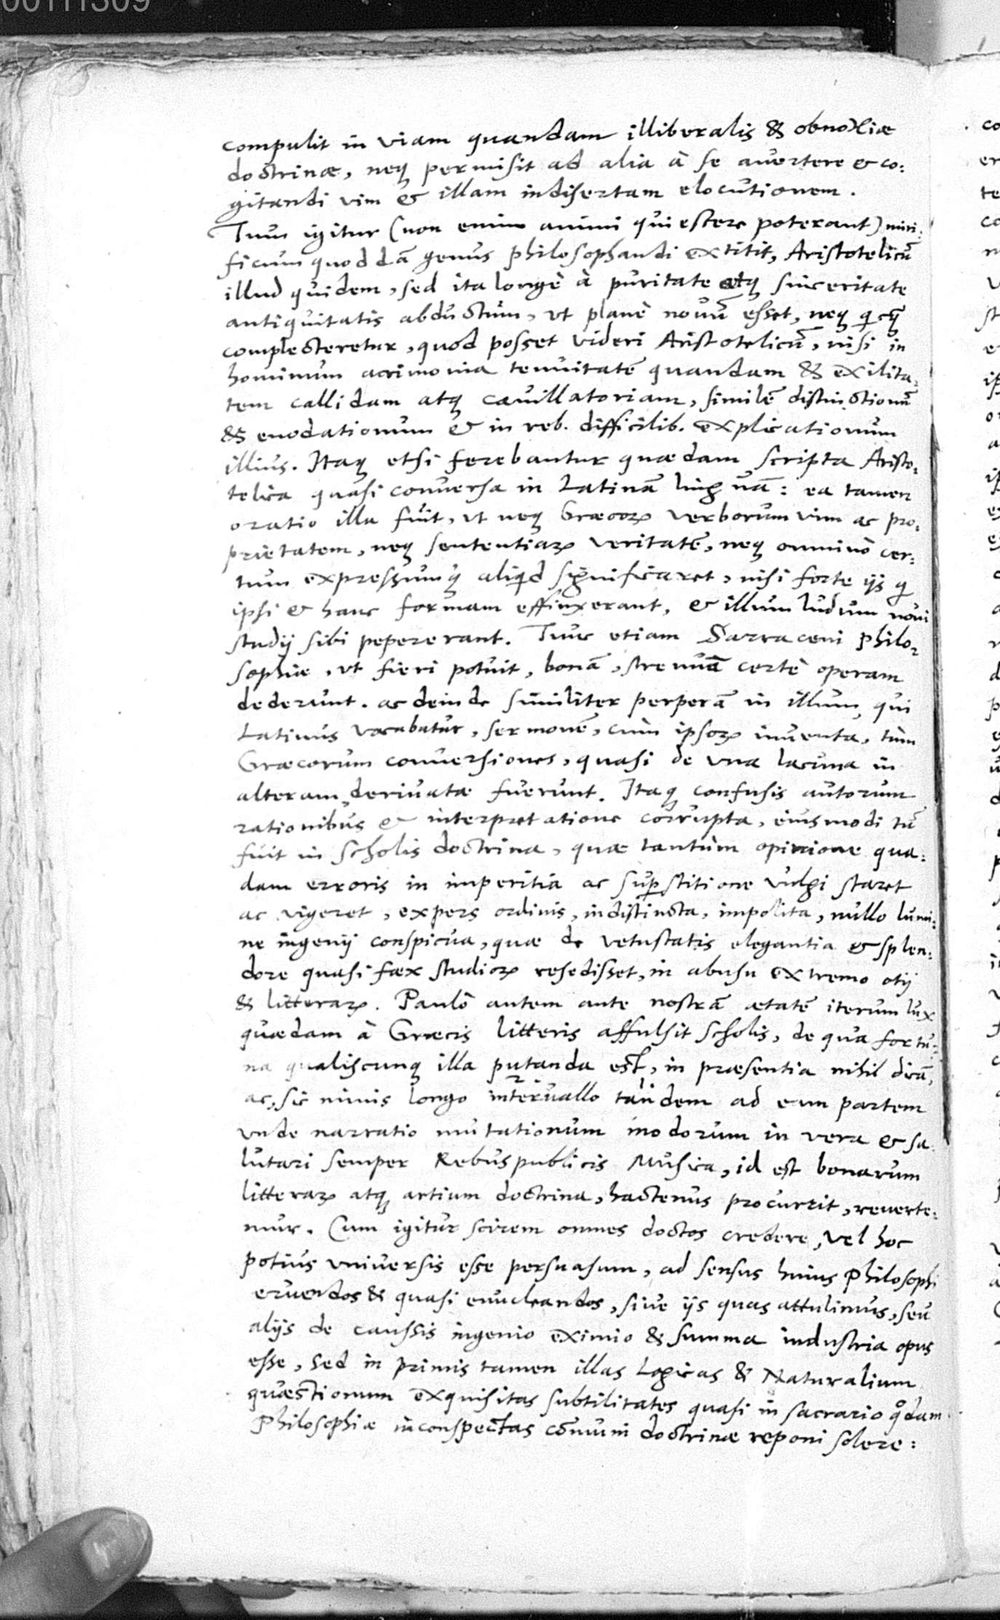 00111309
compulit in viam quandam illiberalis & obnoxiæ
doctrinæ, neq; permisit ad alia à se avertere & co:
gitandi vim & illam indisertam elocutionem.
Tum igitur (non enim animi quiescere poterant) miri:
ficum quoddā genus philosophandi extitit, Aristotelicū
illud quidem, sed ita longè à puritate atq; sinceritate
antiquitatis abductum, ut planè novū esset, neq; qicq;
complecteretur, quod posset videri Aristotelicū, nisi in
hominum acrimonia tenuitatē quandam & exilita:
tem callidam atq; cavillatoriam, similē distinctionū
& enodationum & in reb. difficilib. explicationum
illius. Itaq; etsi ferebantur quædam scripta Aristo:
telica quasi conversa in Latinā linguā: ea tamen
oratio illa fuit, ut neq; Græcoꝝ verborum vim ac pro:
prietatem, neq; sententiaꝝ veritatē, neq; omnino cer:
tum expressumq; aliqid significaret, nisi forte ijs qi
ipsi & hanc formam effinxerant, & illum ludum novi
studij sibi pepererant. Tunc etiam Sarraceni Philo:
sophiæ, ut fieri potuit, bonā, strenuā certè operam
dederunt. ac deinde similiter perperā in illum, qui
Latinus vocabatur, sermonē, cùm ipsoꝝ inventa, tùm
Græcorum conversiones, quasi de una lacuna in
alteram derivatæ fuerunt. Itaq; confusis autorum
rationibus & interpretatione corrupta, eiusmodi tū
fuit in scholis doctrina, quæ tantùm opinione qua:
dam erroris in imperitia ac supstitione vulgi staret
ac vigeret, expers ordinis, indistincta, impolita, nullo lumi:
ne ingenij conspicua, quæ de vetustatis elegantia & splen:
dore quasi fæx studioꝝ resedisset, in abusu extremo otij
& litteraꝝ. Paulò autem ante nostrā ætatē iterum lux
quædam à Græcis litteris affulsit scholis, de qua fortu:
na qualiscunq; illa putanda est, in præsentia nihil dicā,
ac, sic nimis longo intervallo tandem ad eam partem
unde narratio mutationum modorum in vera & sa
lutari semper Rebuspublicis Musica, id est bonarum
litteraꝝ atq; artium doctrina, hactenus procurrit, reverte:
mur. Cum igitur scirem omnes doctos credere, vel hoc
potius universis esse persuasum, ad sensus huius Philosophi
eruendos & quasi enucleandos, sive ijs quas attulimus, seu
alijs de caussis ingenio eximio & summa industria opus
esse, sed in primis tamen illas Logicas & Naturalium
quæstionum exquisitas subtilitates quasi in sacrario qodam
Philosophiæ inconspectas cōmuni doctrinæ reponi solere: